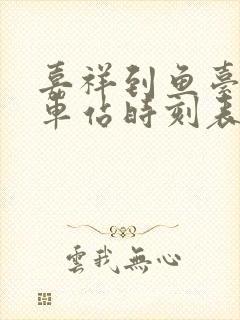 嘉祥到鱼臺
車佔時刻表
雲我無心